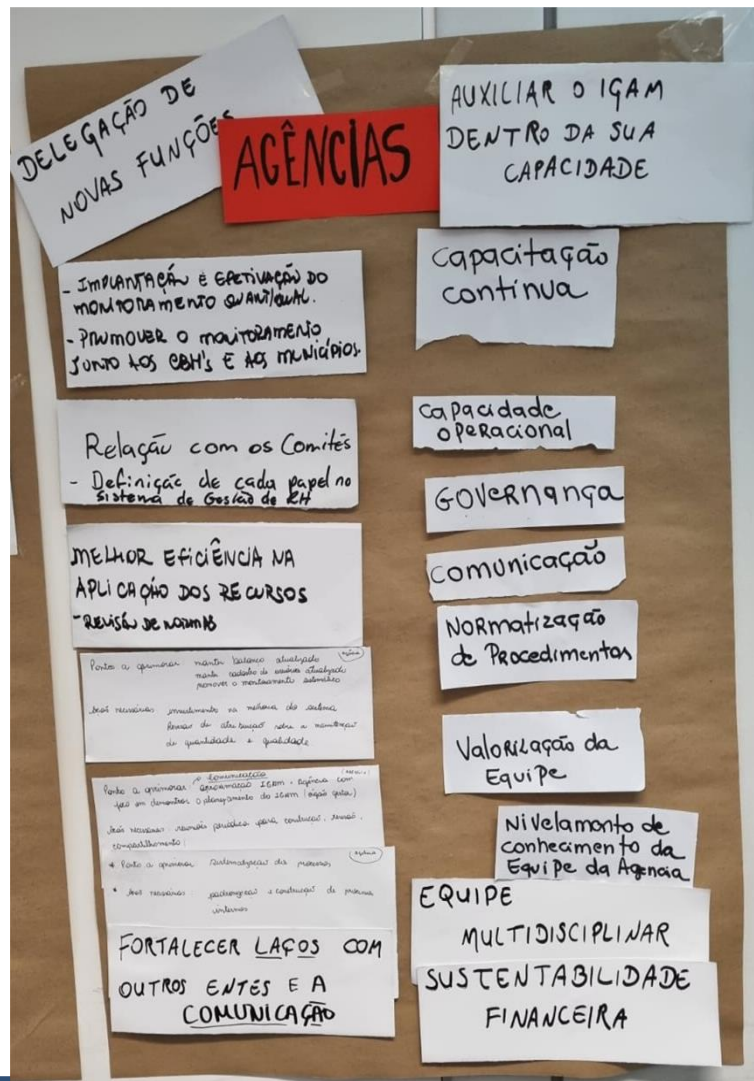 DELEGAÇÃO DE
NOVAS FUNÇÕES
AGÊNCIAS
AUXILIAR O IGAM
DENTRO DA SUA
CAPACIDADE
- IMPLANTAÇÃO E EFETIVAÇÃO DO
MONITORAMENTO QUANT/QUAL.
- PROMOVER O MONITORAMENTO
JUNTO AOS CBH's E AOS MUNICÍPIOS.
Relação com os Comitês
- Definição de cada papel no
sistema de Gestão de RH
MELHOR EFICIÊNCIA NA
APLICAÇÃO DOS RECURSOS
- REVISÃO DE NORMAS
Pontos a aprimorar manter balanço atualizado
manter cadastro de usuários atualizado
promover o monitoramento automático
investimento na melhoria do sistema
sobre a
de quantidade e qualidade
comunicação
Ponto a aprimorar aproximação IGAM - agência com
foco em demonstrar o planejamento do IGAM (órgão gestor)
reuniões periódicas para construção, revisão,
compartilhamento
* Ponto a aprimorar sistematização dos processos
* padronização e construção de processos
internos
FORTALECER LAÇOS COM
OUTROS ENTES E A
COMUNICAÇÃO
Capacitação
contínua
capacidade
operacional
Governança
comunicação
Normatização
de Procedimentos
Valorização da
Equipe
Nivelamento de
conhecimento da
Equipe da Agencia
EQUIPE
MULTIDISCIPLINAR
SUSTENTABILIDADE
FINANCEIRA